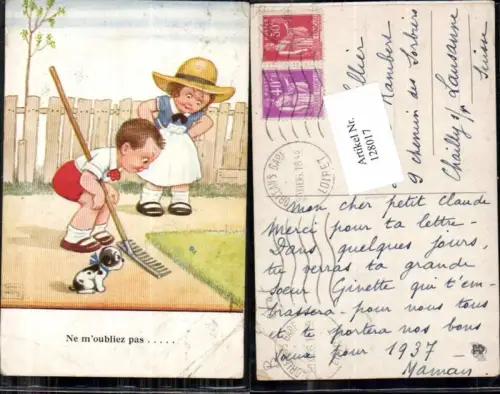 Ne m'oubliez pas . . . . .
50c
40c
Artikel Nr.
128017
Rambert
9 chemin des Sorbiers
Chailly s/ Lausanne
Suisse
Mon cher petit Claude
Merci pour ta lettre-
Dans quelques jours,
tu verras ta grande
soeur Ginette qui t'em-
brassera pour nous tous
et te portera nos bons
voeux pour 1937
Maman